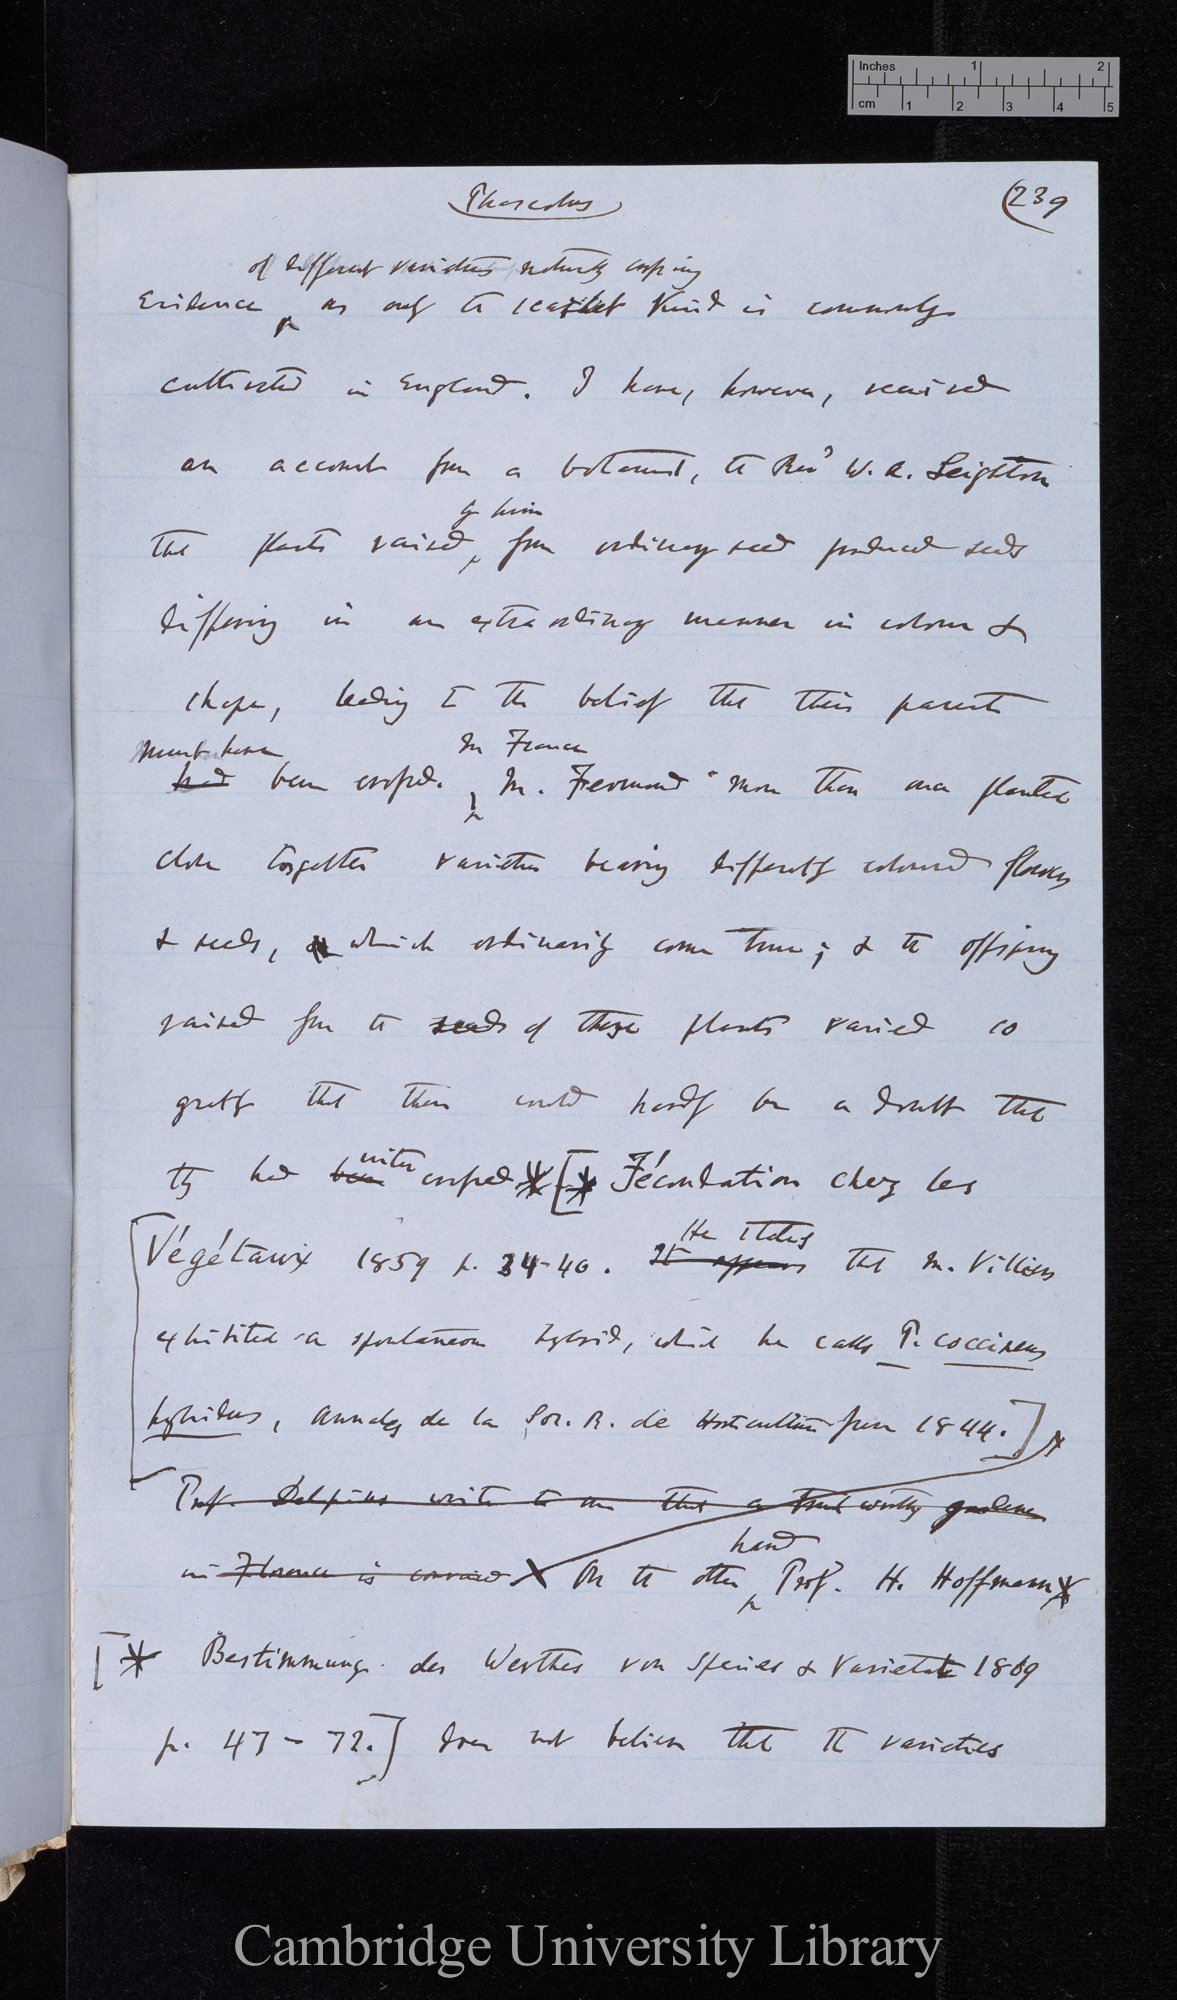 Inches 1 2
cm 1 2 3 4 5
Phaseolus
(239
of different varieties naturally crossing
Evidence as only the scarlet kind is commonly
cultivated in England. I have, however, received
an account from a botanist, the Revd W. A. Leighton
by him
that plants raised, from ordinary seed produced seeds
differing in an extraordinary manner in colour &
shape, leading to the belief that their parents
must have In France
had been crossed. M. Fermond more than once planted
close together varieties bearing differently coloured flowers
& seeds, which ordinarily come true; & the offspring
raised from the seeds of these plants varied so
greatly that there could hardly be a doubt that
inter
they had been crossed* [* Fécondation chez les
He states
Végétaux 1859 p. 34-40. It appears that M. Villiers
exhibited a spontaneous hybrid, which he calls P. coccineus
hybridus, Annales de la Soc. R. de Horticulture June 1844.]
Prof. Delpino writes to me that a trustworthy gardener
hand
in Florence is convinced X On the other Prof. H. Hoffmann*
[* Bestimmung des Werthes von Species & Varietat 1869
p. 47-72.] does not believe that the varieties
Cambridge University Library